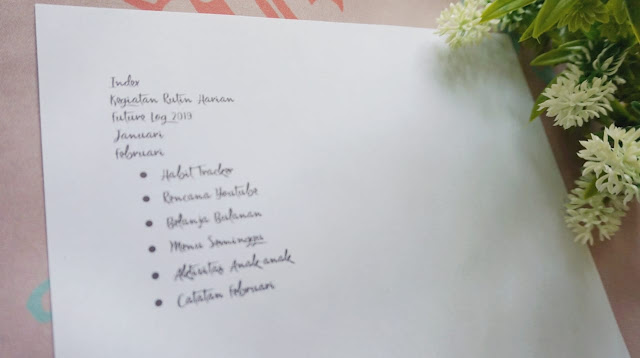 Index
Kegiatan Rutin Harian
Future Log 2019
Januari
Februari
Habit Tracker
Rencana Youtube
Belanja Bulanan
Menu Seminggu
Aktivitas Anak anak
Catatan Februari